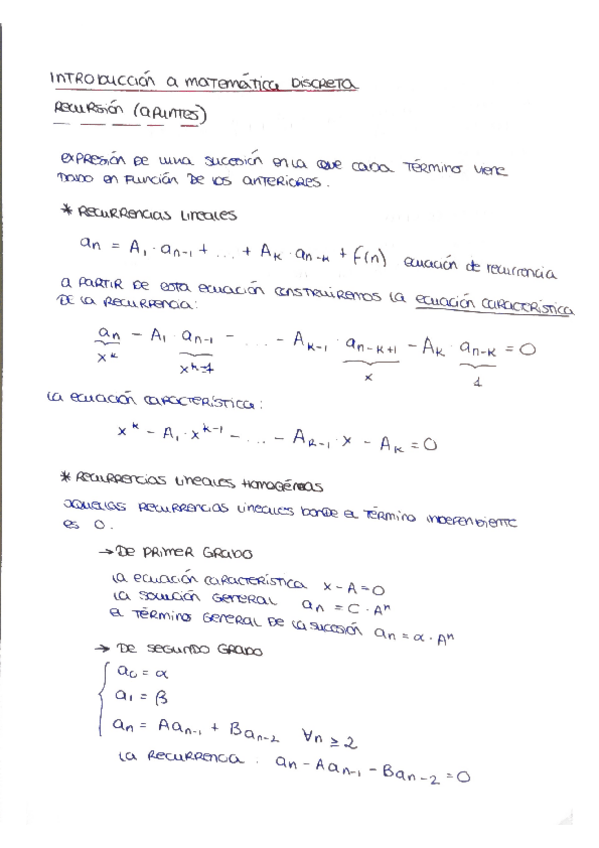 INTRODUCCIÓN A MATEMÁTICA DISCRETA
RECURSIÓN (APUNTES)
EXPRESIÓN DE UNA SUCESIÓN EN LA QUE CADA TÉRMINO VIENE
DADO EN FUNCIÓN DE LOS ANTERIORES.
* RECURRENCIAS LINEALES
aₙ = A₁ · aₙ₋₁ + ... + Aₖ · aₙ₋ₖ + f(n) ecuación de recurrencia
A PARTIR DE ESTA ECUACIÓN CONSTRUIREMOS LA ECUACIÓN CARACTERÍSTICA
DE LA RECURRENCIA:
aₙ − A₁ · aₙ₋₁ − ... − Aₖ₋₁ · aₙ₋ₖ₊₁ − Aₖ · aₙ₋ₖ = 0
xᵏ xᵏ⁻¹ x 1
LA ECUACIÓN CARACTERÍSTICA:
xᵏ − A₁ · xᵏ⁻¹ − ... − Aₖ₋₁ · x − Aₖ = 0
* RECURRENCIAS LINEALES HOMOGÉNEAS
AQUELLAS RECURRENCIAS LINEALES DONDE EL TÉRMINO INDEPENDIENTE
ES 0.
→ DE PRIMER GRADO
LA ECUACIÓN CARACTERÍSTICA x − A = 0
LA SOLUCIÓN GENERAL aₙ = C · Aⁿ
EL TÉRMINO GENERAL DE LA SUCESIÓN aₙ = α · Aⁿ
→ DE SEGUNDO GRADO
a₀ = α
a₁ = β
aₙ = Aaₙ₋₁ + Baₙ₋₂ ∀n ≥ 2
LA RECURRENCIA . aₙ − Aaₙ₋₁ − Baₙ₋₂ = 0